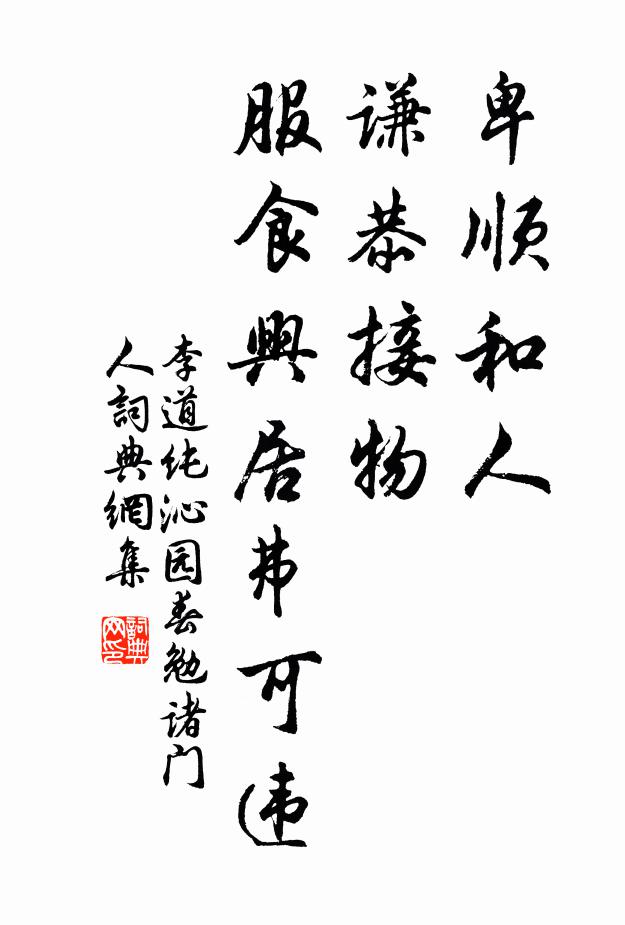 卑顺和人
谦恭接物
服食興居弗可违
李道纯沁园春勉诸门
人詞典網集
詞典网印